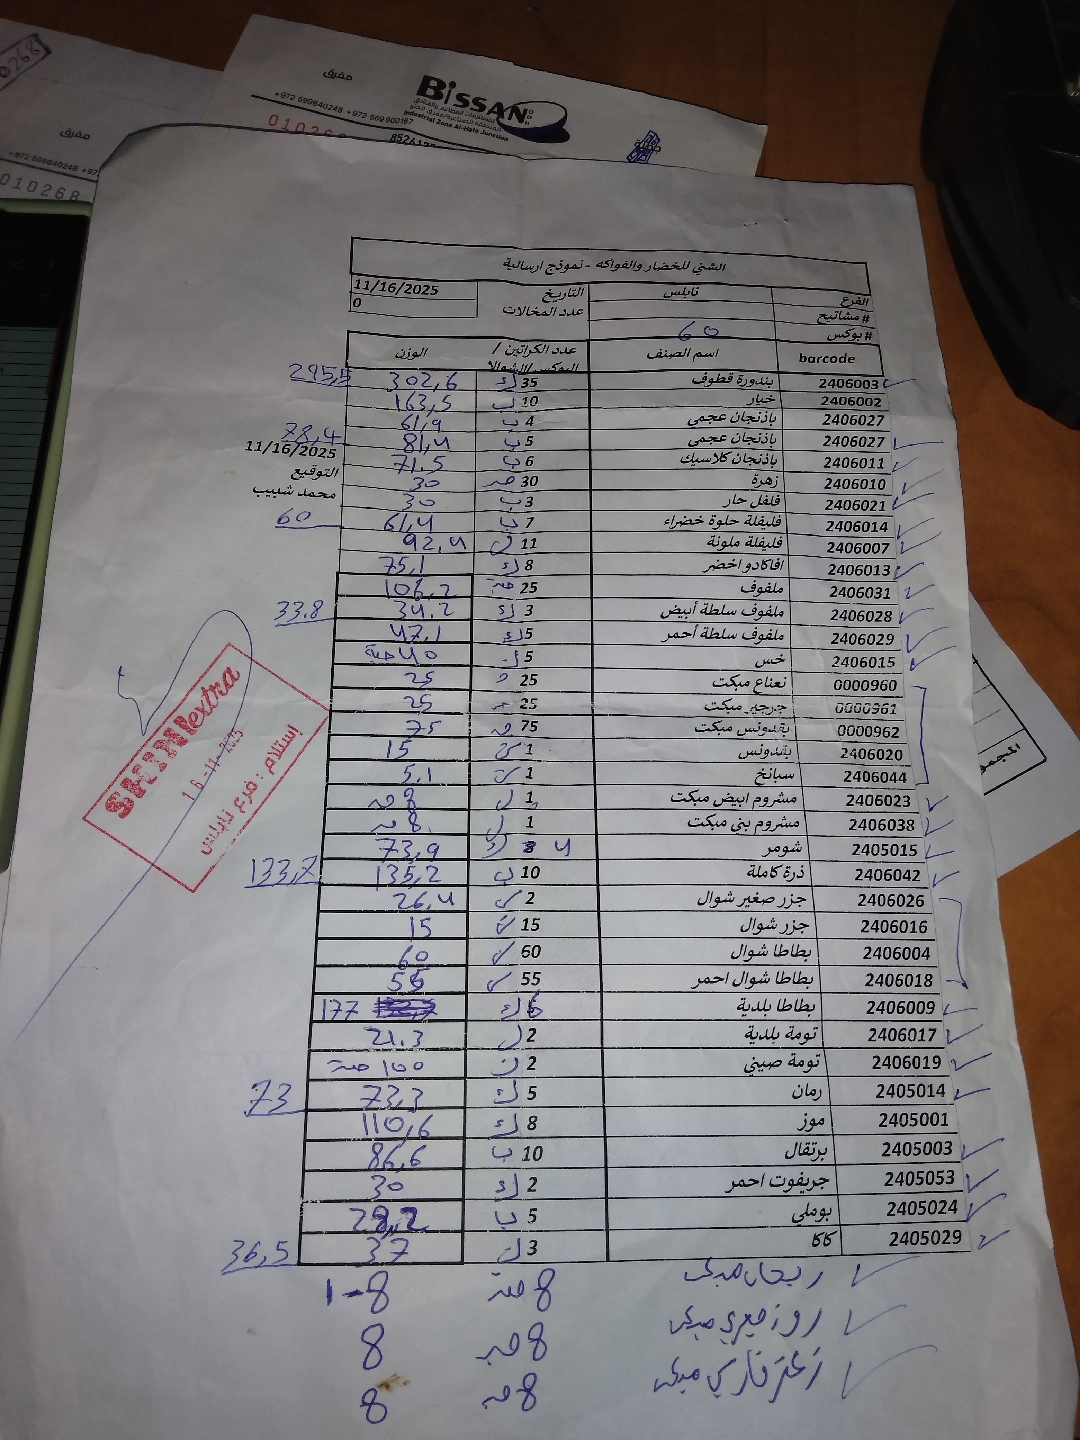 0268
مفرق
BiSSAN
+972 599640248 +972 569 900167
Industrial Zone Al-Hato Junction
مفرق
010268
الشني للخضار والفواكه - نموذج ارسالية
الفرع نابلس التاريخ 11/16/2025
# مشاتيح عدد المخالات 0
# بوكس 60
barcode اسم الصنف عدد الكراتين / البوكس/الشوالا الوزن
2406003 بندورة قطوف 35 ك 302,6 295,5
2406002 خيار 10 ب 163,5
2406027 باذنجان عجمي 4 ب 61,9
2406027 باذنجان عجمي 5 ب 81,4 78,4
2406011 باذنجان كلاسيك 6 ب 71.5
11/16/2025
2406010 زهرة 30 30
التوقيع
2406021 فلفل حار 3 ب 30
محمد شبيب
2406014 فليفلة حلوة خضراء 7 ب 61,4 60
2406007 فليفلة ملونة 11 ك 92,4
2406013 افاكادو اخضر 8 ك 75,1
2406031 ملفوف 25 حبة 106,2
2406028 ملفوف سلطة أبيض 3 ك 34.2 33.8
2406029 ملفوف سلطة أحمر 5 ك 47,1
2406015 خس 5 ك 40 حبة
0000960 نعناع مبكت 25 25
0000961 جرجير مبكت 25 25
0000962 بقدونس مبكت 75 75
2406020 بقدونس 1 15
2406044 سبانخ 1 5.1
2406023 مشروم ابيض مبكت 1 8
2406038 مشروم بني مبكت 1 8
2405015 شومر 3 4 ك 73,9
2406042 ذرة كاملة 10 ب 135,2 133,7
2406026 جزر صغير شوال 2 26,4
2406016 جزر شوال 15 15
2406004 بطاطا شوال 60 60
2406018 بطاطا شوال احمر 55 55
2406009 بطاطا بلدية 6 ك 177
2406017 تومة بلدية 2 ك 21.3
2406019 تومة صيني 2 ك 100 حبة
2405014 رمان 5 ك 73,3 73
2405001 موز 8 ك 110,6
2405003 برتقال 10 ب 86,6
2405053 جريفوت احمر 2 ك 30
2405024 بوملي 5 ب 28,2
2405029 كاكا 3 ك 37 36,5
ريحان مبكت 8 حبة 8-1
روزميري مبكت 8 حبة 8
زعتر فارسي مبكت 8 حبة 8
SHINI extra
16-11-2025
إستلام : فرع نابلس
المجمو